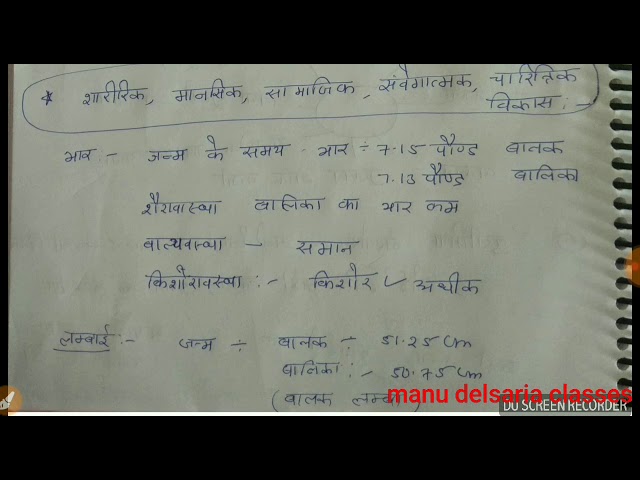 * शारीरिक, मानसिक, सामाजिक, संवेगात्मक, चारित्रिक
विकास :-
भार :- जन्म के समय भार ÷ 7.15 पौण्ड बालक
7.13 पौण्ड बालिका
शैशवास्था बालिका का भार कम
बाल्यवास्था - समान
किशोरावस्था :- किशोर ✓ अधीक
लम्बाई :- जन्म ÷ बालक ÷ 51.25 cm
बालिका :- 50.75 cm
(बालक लम्बा)
manu delsaria classes
DU SCREEN RECORDER